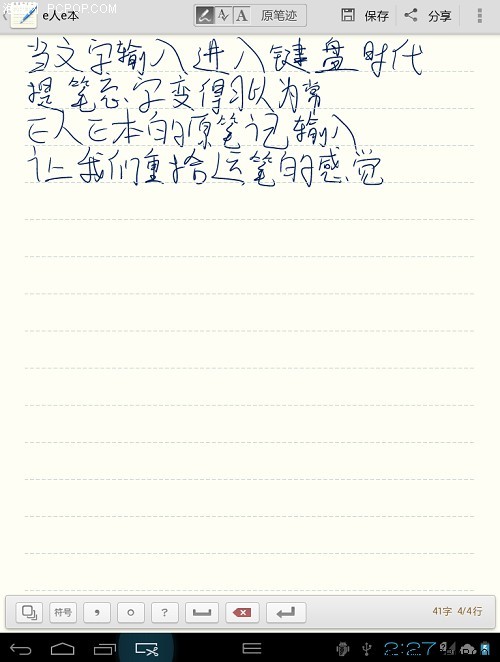 PCPOP.COM
e人e本
原笔迹 保存 分享
当文字输入进入键盘时代
提笔忘字变得习以为常
E人E本的原笔记输入
让我们重拾运笔的感觉
符号 , 。 ? 41字 4/4行
2:27